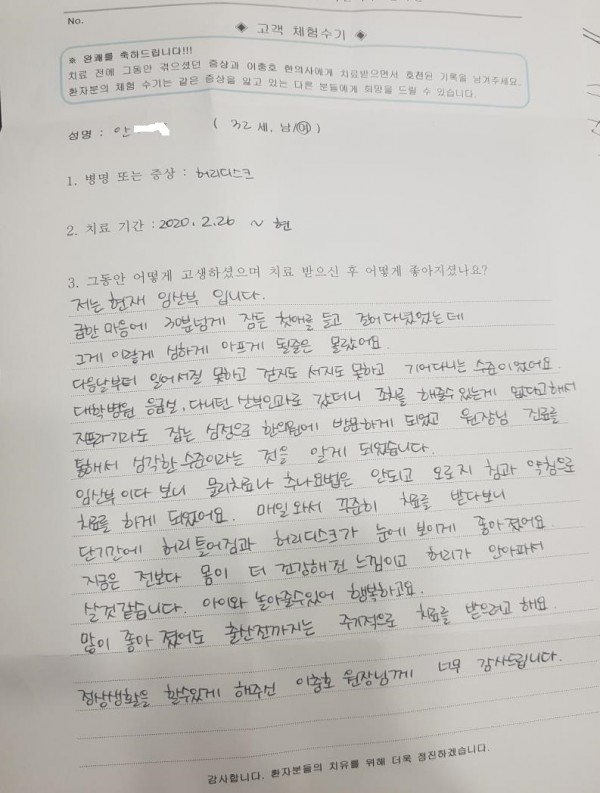 No.
◈ 고객 체험수기 ◈
※ 완쾌를 축하드립니다!!!
치료 전에 그동안 겪으셨던 증상과 이중호 한의사에게 치료받으면서 호전된 기록을 남겨주세요.
환자분의 체험 수기는 같은 증상을 앓고 있는 다른 분들에게 희망을 드릴 수 있습니다.
성명 : 안 ( 32 세, 남/여 )
1. 병명 또는 증상 : 허리디스크
2. 치료 기간 : 2020. 2. 26 ~ 현
3. 그동안 어떻게 고생하셨으며 치료 받으신 후 어떻게 좋아지셨나요?
저는 현재 임산부 입니다.
급한 마음에 30분넘게 잠든 첫애를 들고 걸어다녔었는데
그게 이렇게 심하게 아프게 될줄은 몰랐어요.
다음날부터 일어서질 못하고 걷지도 서지도 못하고 기어다니는 수준이었어요.
대학병원 응급실, 다니던 산부인과로 갔더니 조치를 해줄수 있는게 없다고해서
지푸라기라도 잡는 심정으로 한의원에 방문하게 되었고 원장님 진료를
통해서 심각한 수준이라는 것을 알게 되었습니다.
임산부이다 보니 물리치료나 추나요법은 안되고 오로지 침과 약침으로
치료를 하게 되었어요. 매일 와서 꾸준히 치료를 받다보니
단기간에 허리틀어짐과 허리디스크가 눈에 보이게 좋아졌어요.
지금은 전보다 몸이 더 건강해진 느낌이고 허리가 안아파서
살것같습니다. 아이와 놀아줄수있어 행복하고요.
많이 좋아 졌어도 출산전까지는 주기적으로 치료를 받으려고 해요.
정상생활을 할수있게 해주신 이중호 원장님께 너무 감사드립니다.
감사합니다. 환자분들의 치유를 위해 더욱 정진하겠습니다.